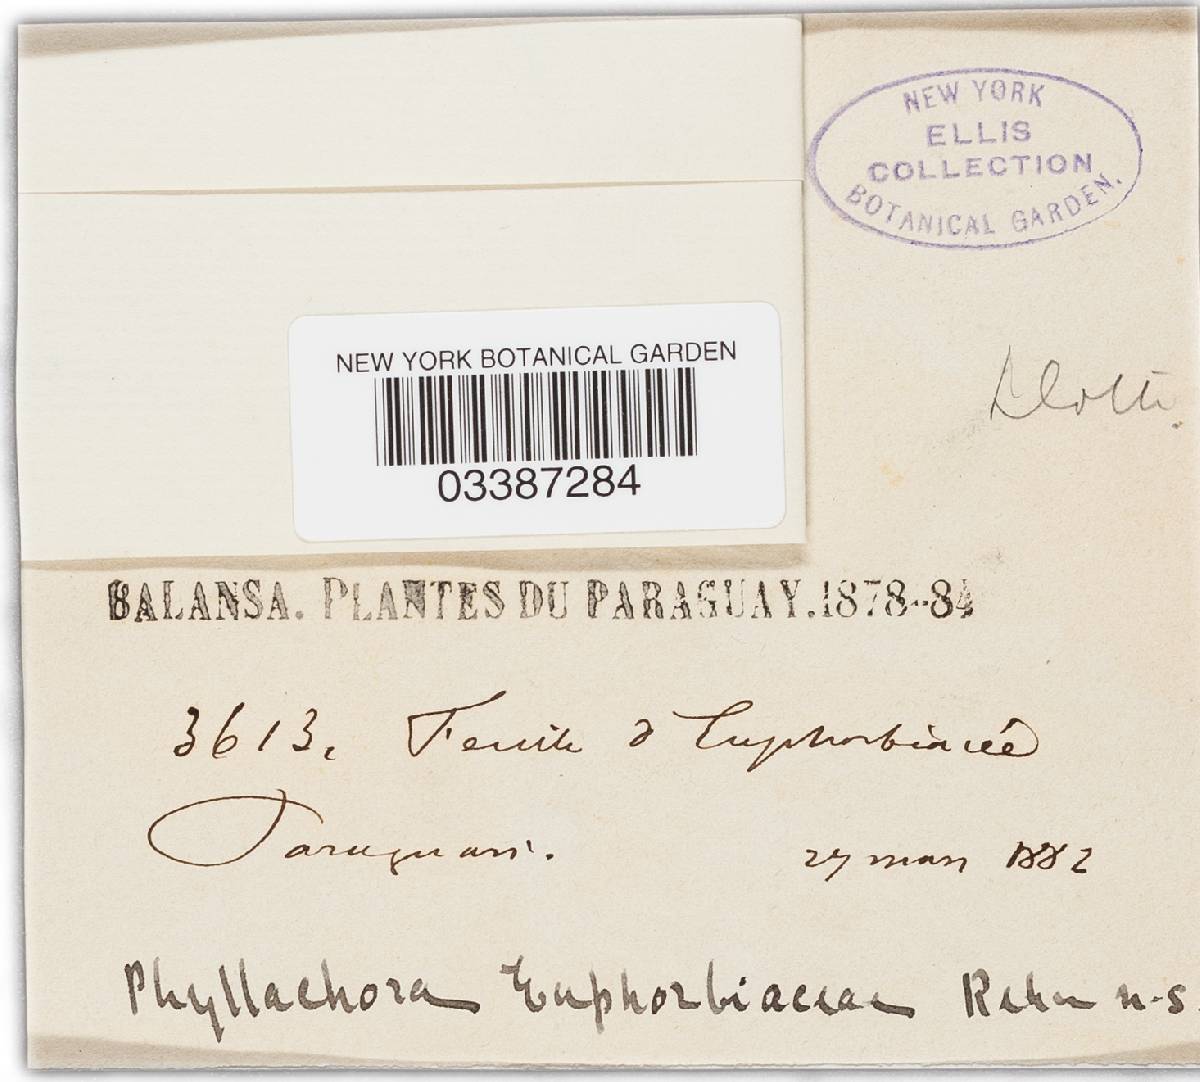 NEW YORK
ELLIS
COLLECTION
BOTANICAL GARDEN.
NEW YORK BOTANICAL GARDEN
03387284
BALANSA. PLANTES DU PARAGUAY. 1878--84
3613, Feuille d'Euphorbiacée
Paraguari. 27 mars 1882
Phyllachora Euphorbiaceae Rehm n-s.